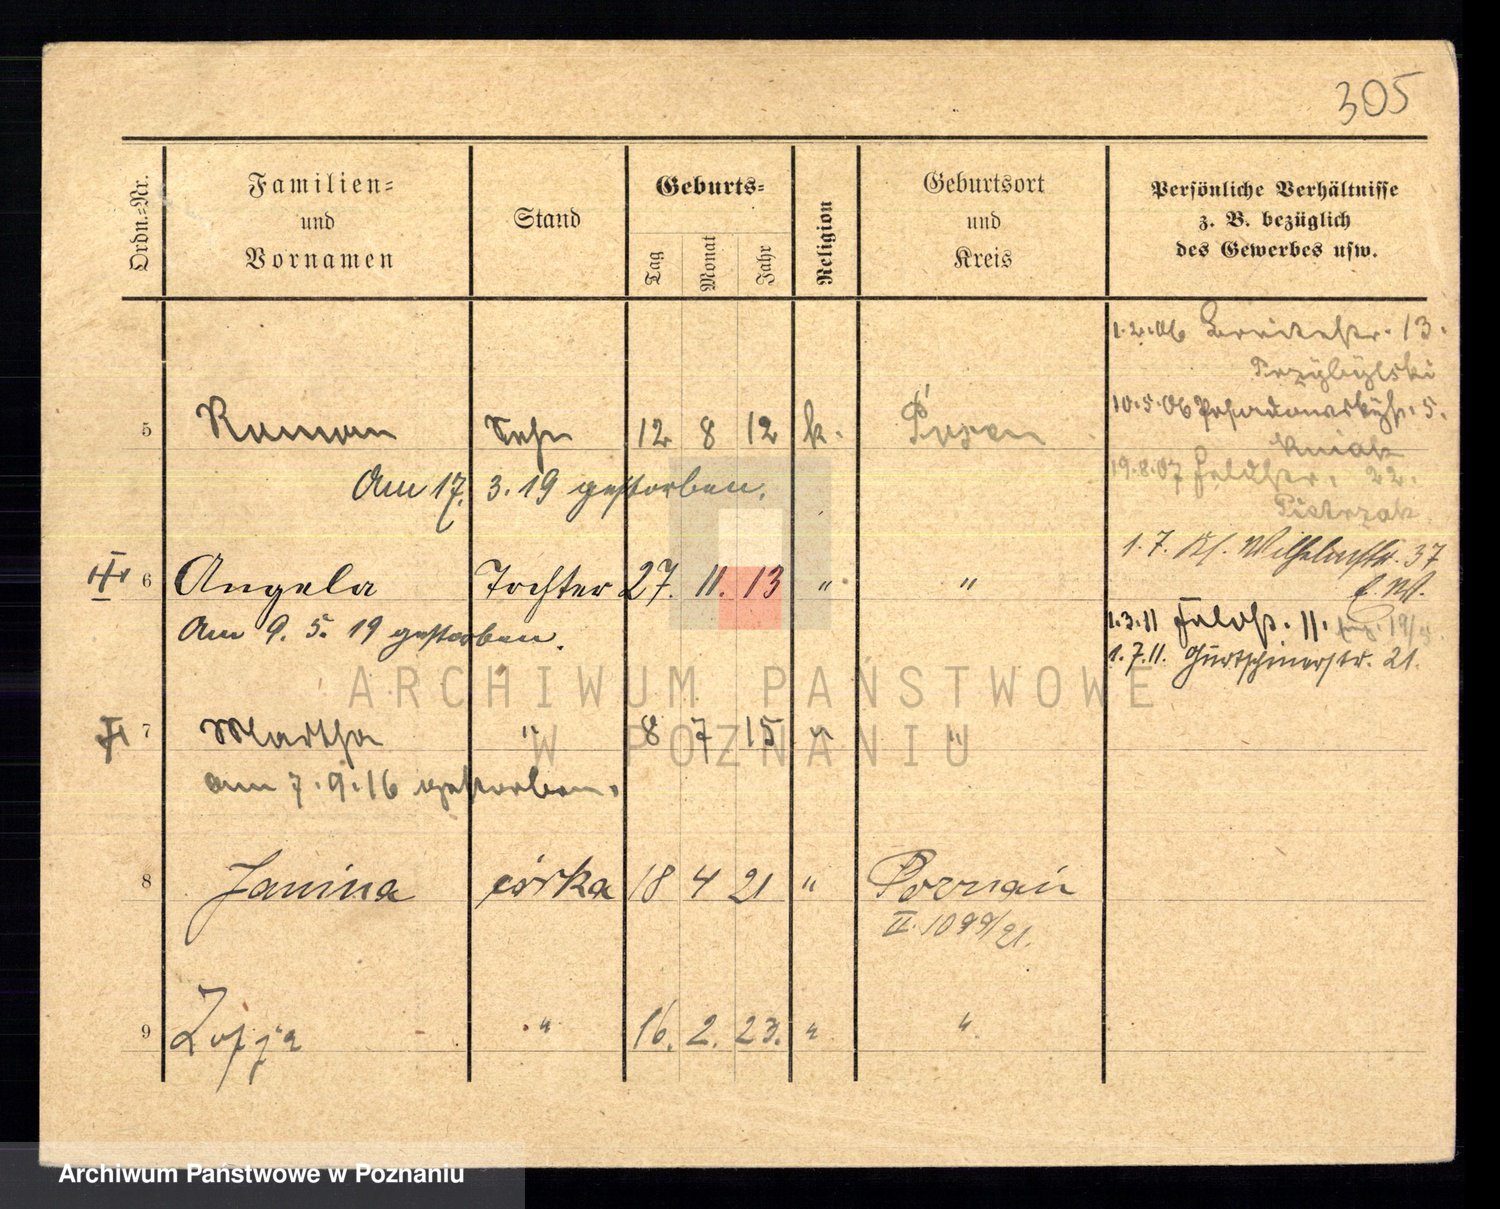 305
Ordn.=Nr.
Familien=
und
Vornamen
Stand
Geburts=
Tag
Monat
Jahr
Religion
Geburtsort
und
Kreis
Persönliche Verhältnisse
z. B. bezüglich
des Gewerbes usw.
1.2.06 Breitestr. 13.
Przybylski
10.5.06 Posadowskystr. 5.
Kniak
5 Roman Sohn 12 8 12 k. Posen
19.8.07 Feldstr. 22.
Pietrzak
Am 17. 3. 19 gestorben.
1.7. Wilhelmstr. 37
6 Angela Tochter 27. 11. 13 " "
Am 9. 5. 19 gestorben.
1.3.11 Feldstr. 11.
1.7.11. Gurtschinerstr. 21.
7 Martha " 8 7 15 " "
am 7.9.16 gestorben.
8 Janina córka 18 4 21 " Poznań
II. 1099/21.
9 Zofja " 16. 2. 23. " "
ARCHIWUM PAŃSTWOWE
W POZNANIU
Archiwum Państwowe w Poznaniu